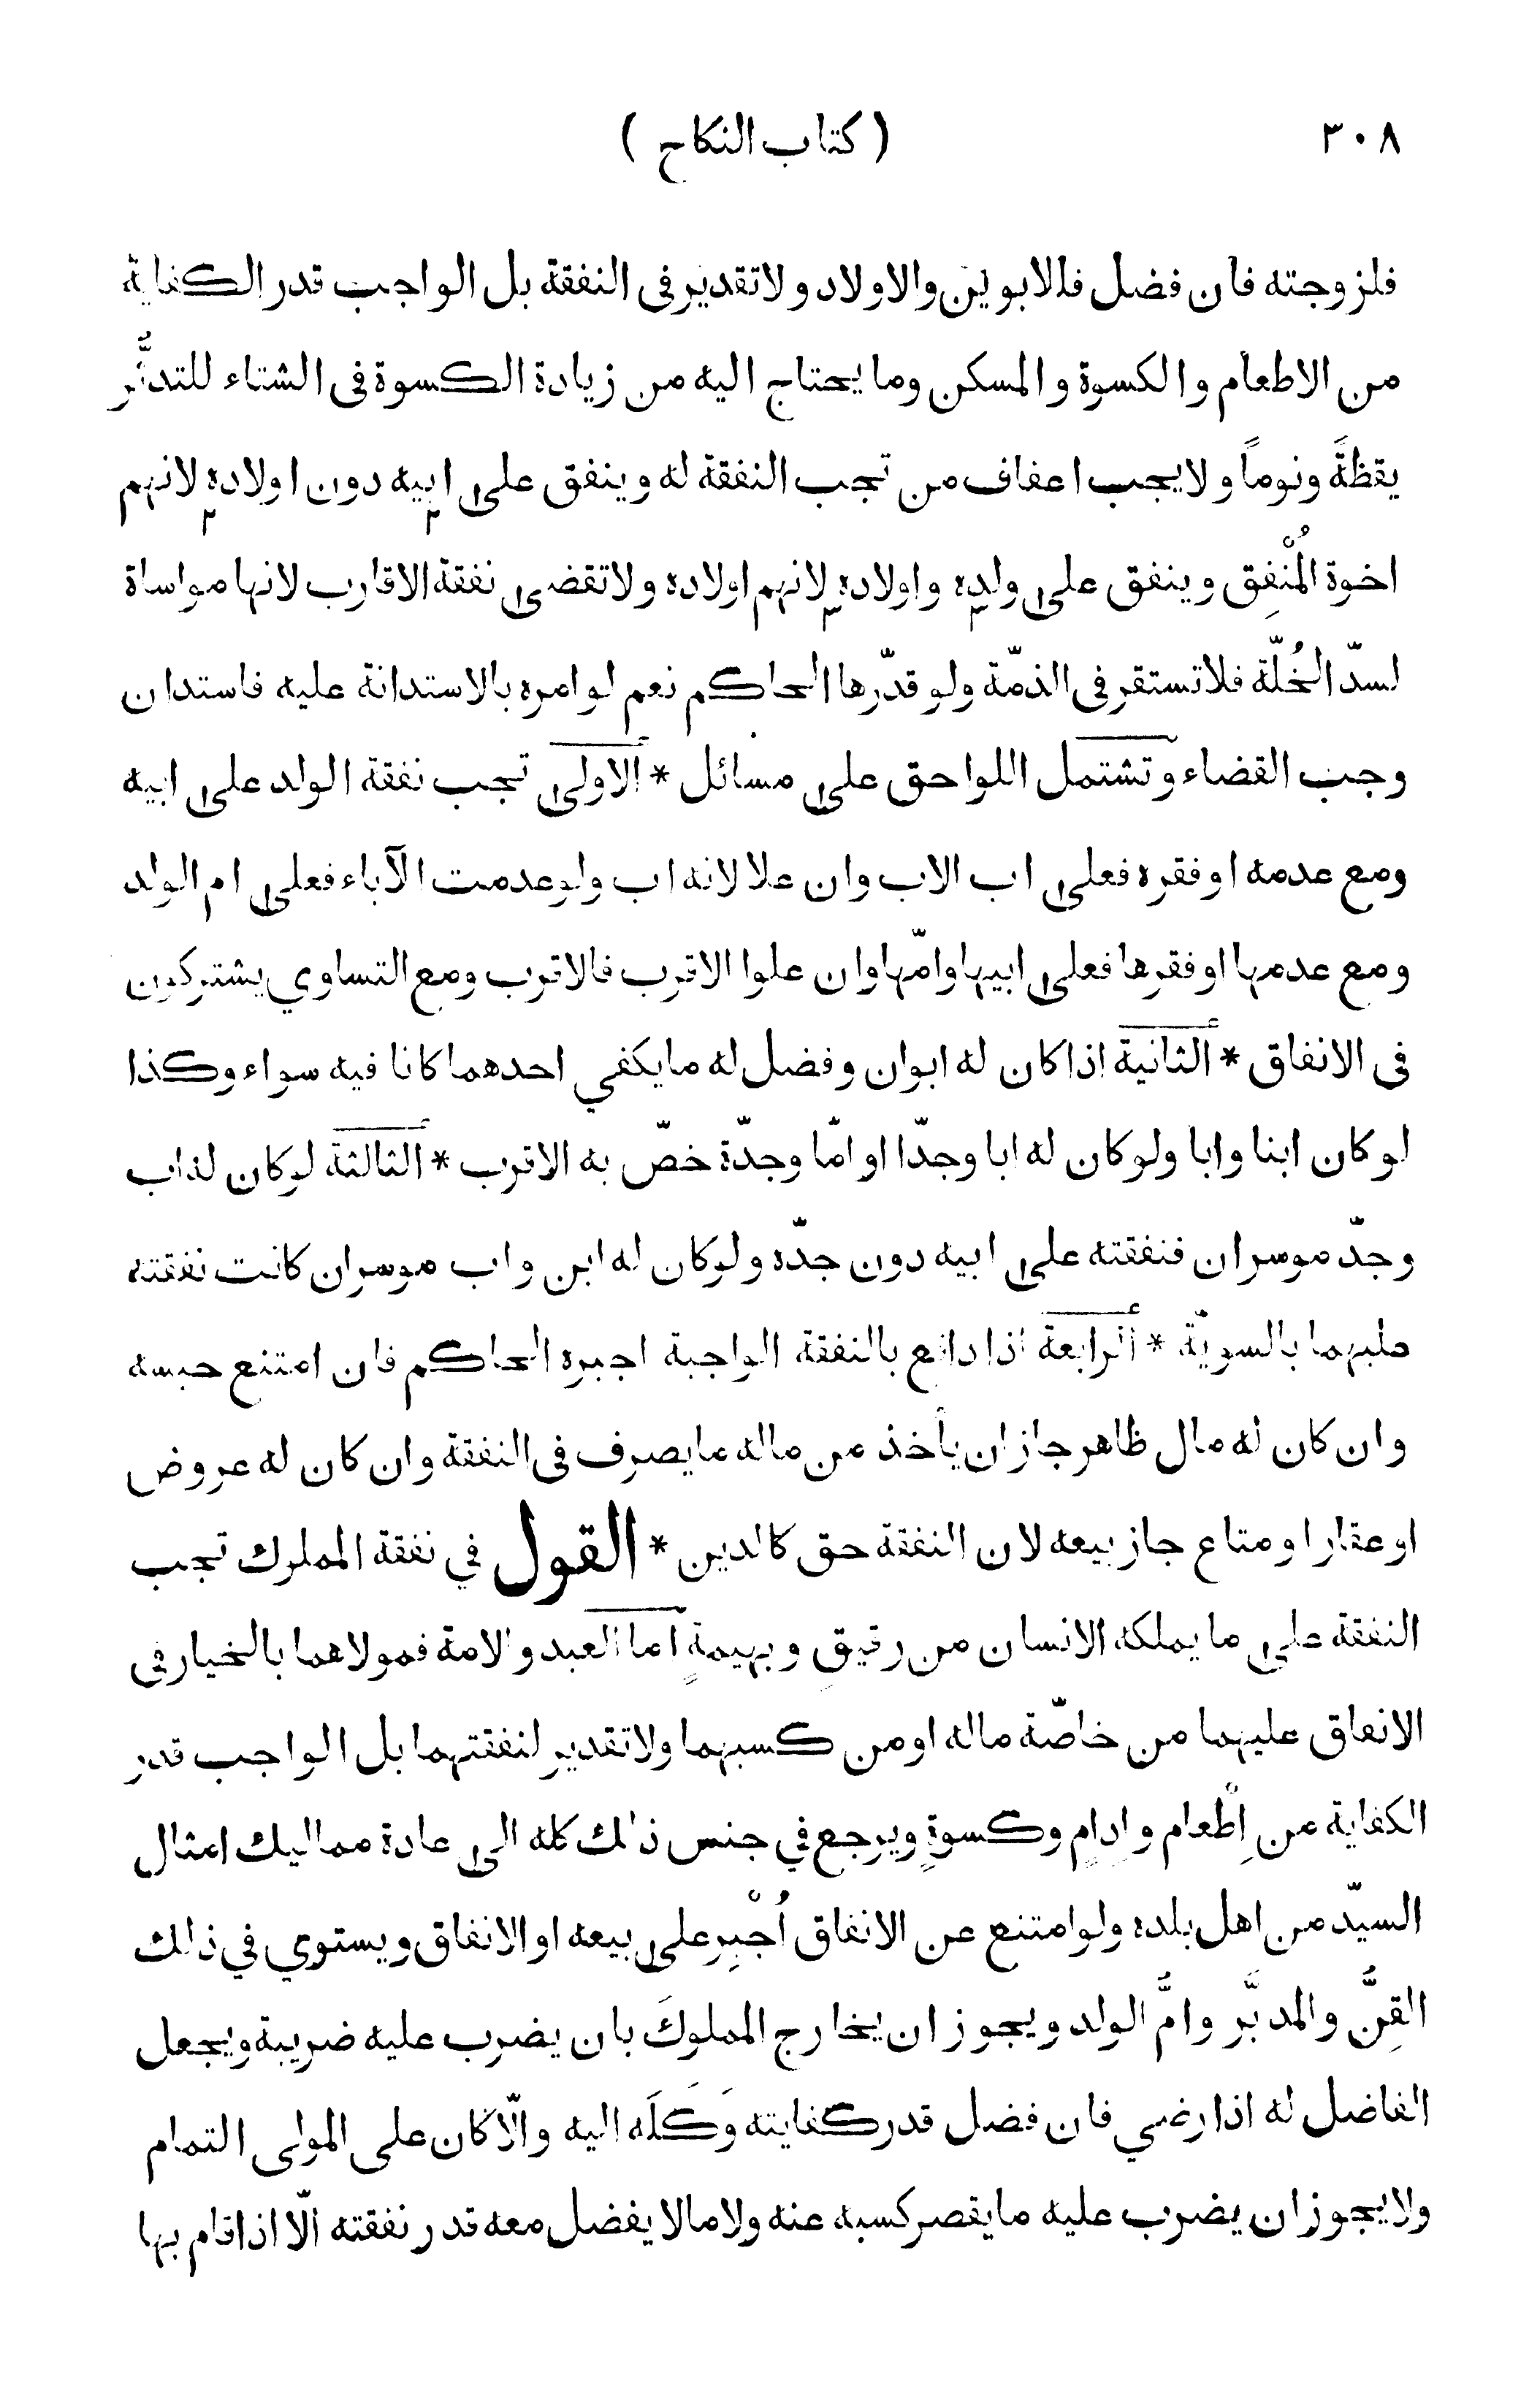 ٣٠٨
( كتاب النكاح )
فلزوجته فان فضل فللابوين والاولاد ولا تقدير فى النفقة بل الواجب قدر الكفاية
من الاطعام والكسوة والمسكن وما يحتاج اليه من زيادة الكسوة فى الشتاء للتدثُّر
يقظةً ونوماً ولا يجب اعفاف من تجب النفقة له وينفق على ابيه دون اولاده لانهم
اخوة المُنْفِق وينفق على ولده واولاده لانهم اولاده ولا تقضى نفقة الاقارب لانها مواساة
لسدّ الخُلّة فلا تستقر فى الذمّة ولو قدّرها الحاكم نعم لو امره بالاستدانة عليه فاستدان
وجب القضاء وتشتمل اللواحق على مسائل * الاولى تجب نفقة الولد على ابيه
ومع عدمه او فقره فعلى اب الاب وان علا لانه اب ولو عدمت الآباء فعلى ام الولد
ومع عدمها او فقرها فعلى ابيها وامّها وان علوا الاقرب فالاقرب ومع التساوي يشتركون
فى الانفاق * الثانية اذا كان له ابوان وفضل له ما يكفي احدهما كانا فيه سواء وكذا
لو كان ابنا وابا ولو كان له ابا وجدّا او امّا وجدّة خصّ به الاقرب * الثالثة لو كان له اب
وجدّ موسران فنفقته على ابيه دون جدّه ولو كان له ابن واب موسران كانت نفقته
عليهما بالسويّة * الرابعة اذا دافع بالنفقة الواجبة اجبره الحاكم فان امتنع حبسه
وان كان له مال ظاهر جاز ان يأخذ من ماله ما يصرف فى النفقة وان كان له عروض
او عقار او متاع جاز بيعه لان النفقة حق كالدين * القول في نفقة المملوك تجب
النفقة على ما يملكه الانسان من رقيقٍ وبهيمةٍ اما العبد والامة فمولاهما بالخيار فى
الانفاق عليهما من خاصّة ماله او من كسبهما ولا تقدير لنفقتهما بل الواجب قدر
الكفاية من اِطْعام واِدامٍ وكسوةٍ ويرجع في جنس ذلك كله الى عادة مماليك امثال
السيّد من اهل بلده ولو امتنع عن الانفاق اُجْبِر على بيعه او الانفاق ويستوي في ذلك
القِنُّ والمدبَّر وامُّ الولد ويجوز ان يخارج المملوكَ بان يضرب عليه ضريبة ويجعل
الفاضل له اذا رضي فان فضل قدر كفايته وَكَلَه اليه والّا كان على المولى التمام
ولا يجوز ان يضرب عليه ما يقصر كسبه عنه ولا ما لا يفضل معه قدر نفقته الّا اذا قام بها